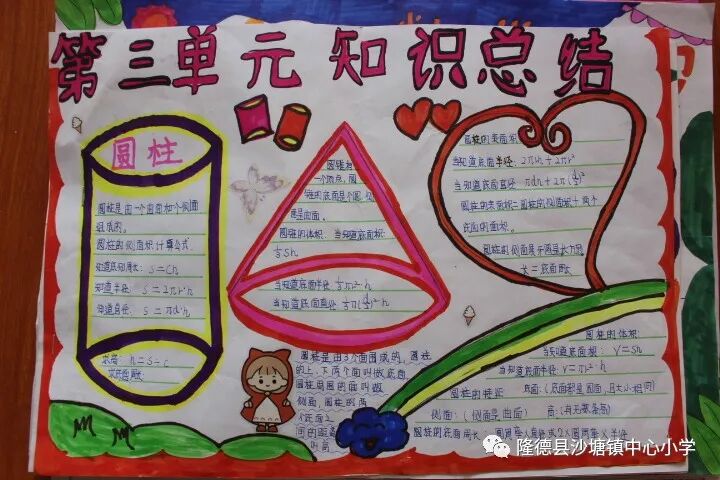 第三单元知识总结
圆柱
圆柱是由一个曲面和个侧面
组成的。
圆柱的侧面积计算公式
知道底面周长: S=Ch
知道半径: S=2πr·h
知道直径: S=πd·h
求高 h=S÷C
求底面周长
圆锥
一个顶点,圆
锥的底面是个圆,侧
面是曲面。
圆锥的体积:当知道底面积:
⅓Sh
当知道底面半径 ⅓πr²·h
当知道底面直径 ⅓π(d/2)²·h
圆柱的表面积
当知道底面半径: 2πrh+2πr²
当知道底面直径: πdh+2π(d/2)²
圆柱的表面积=圆柱的侧面积+两个
底面的面积。
圆柱的侧面展开图是长方形
长=底面周长
圆柱是由3个面围成的。圆柱
的上、下两个面叫做底面
圆柱周围的面叫做
侧面,圆柱的两
个底面之
间的距离
叫高
圆柱的体积
当知道底面积: V=Sh
当知道底面半径 V=πr²·h
圆柱的特征 底面:(底面都是圆面,且大小相同)
侧面:(侧面是曲面) 高:(有无数条高)
圆柱的底面周长:
隆德县沙塘镇中心小学